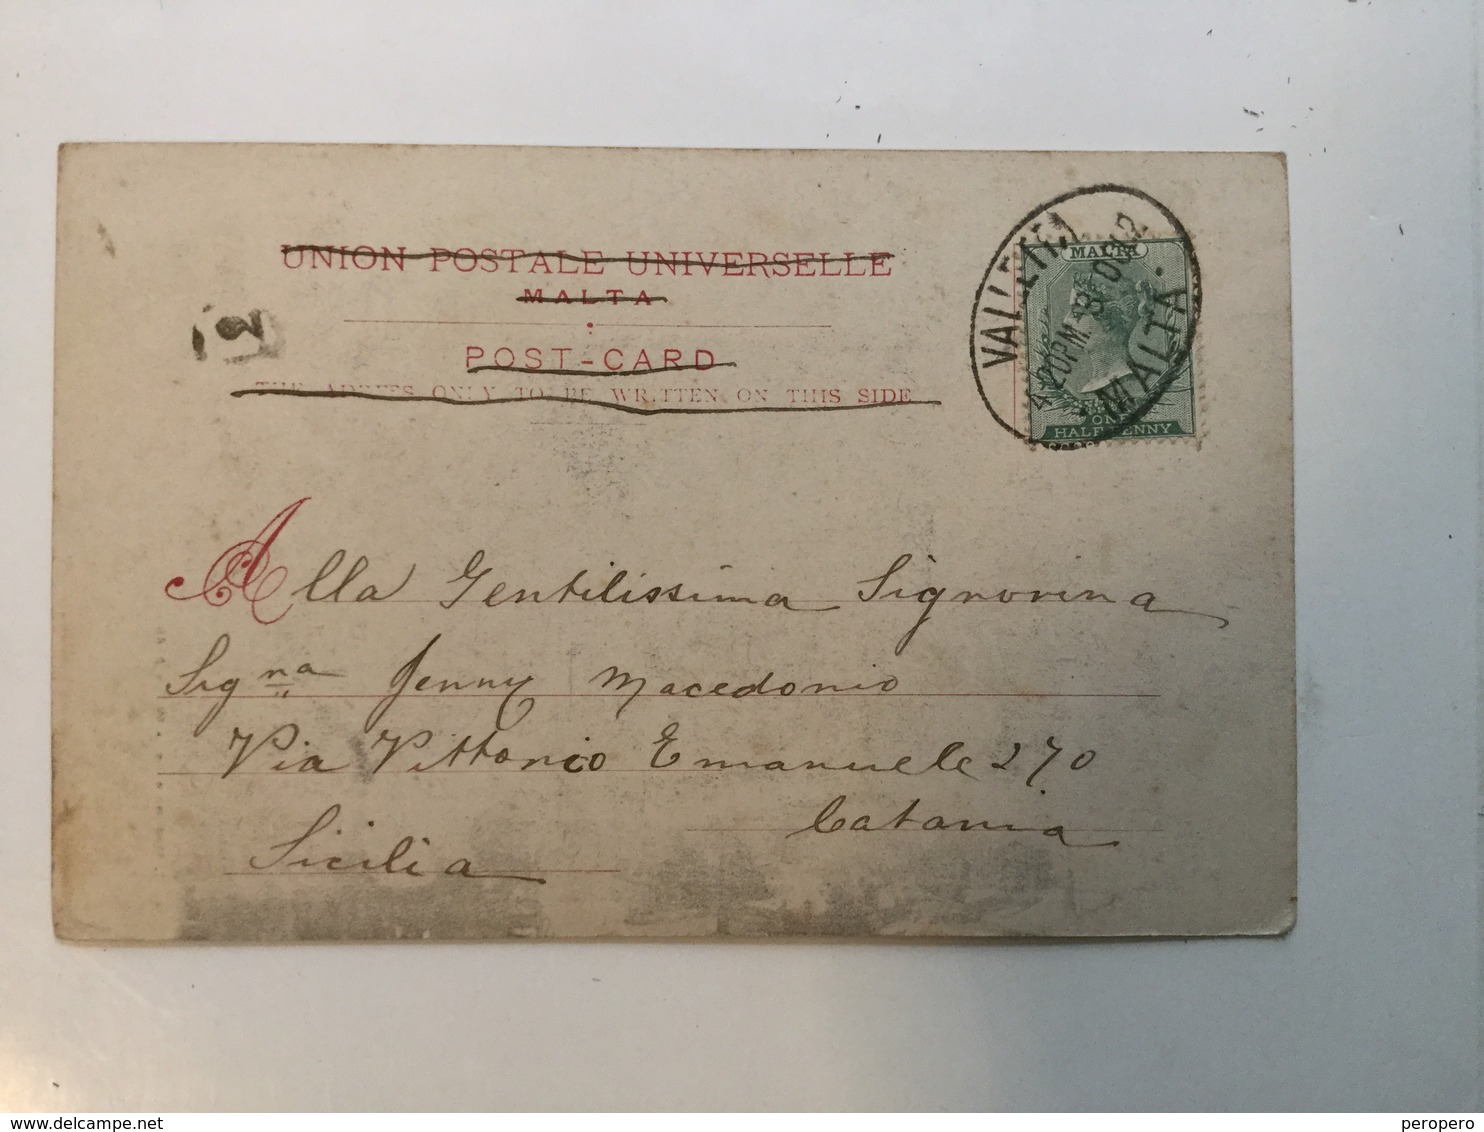 UNION POSTALE UNIVERSELLE
MALTA
POST-CARD
ONLY TO BE WRITTEN ON THIS SIDE
VALLETTA
4.20PM
MALTA
MALTA
ONE
HALFPENNY
2
Alla Gentilissima Signorina
Signa Jenny Macedonio
Via Vittorio Emanuele 270
Catania
Sicilia
www.delcampe.net
peropero